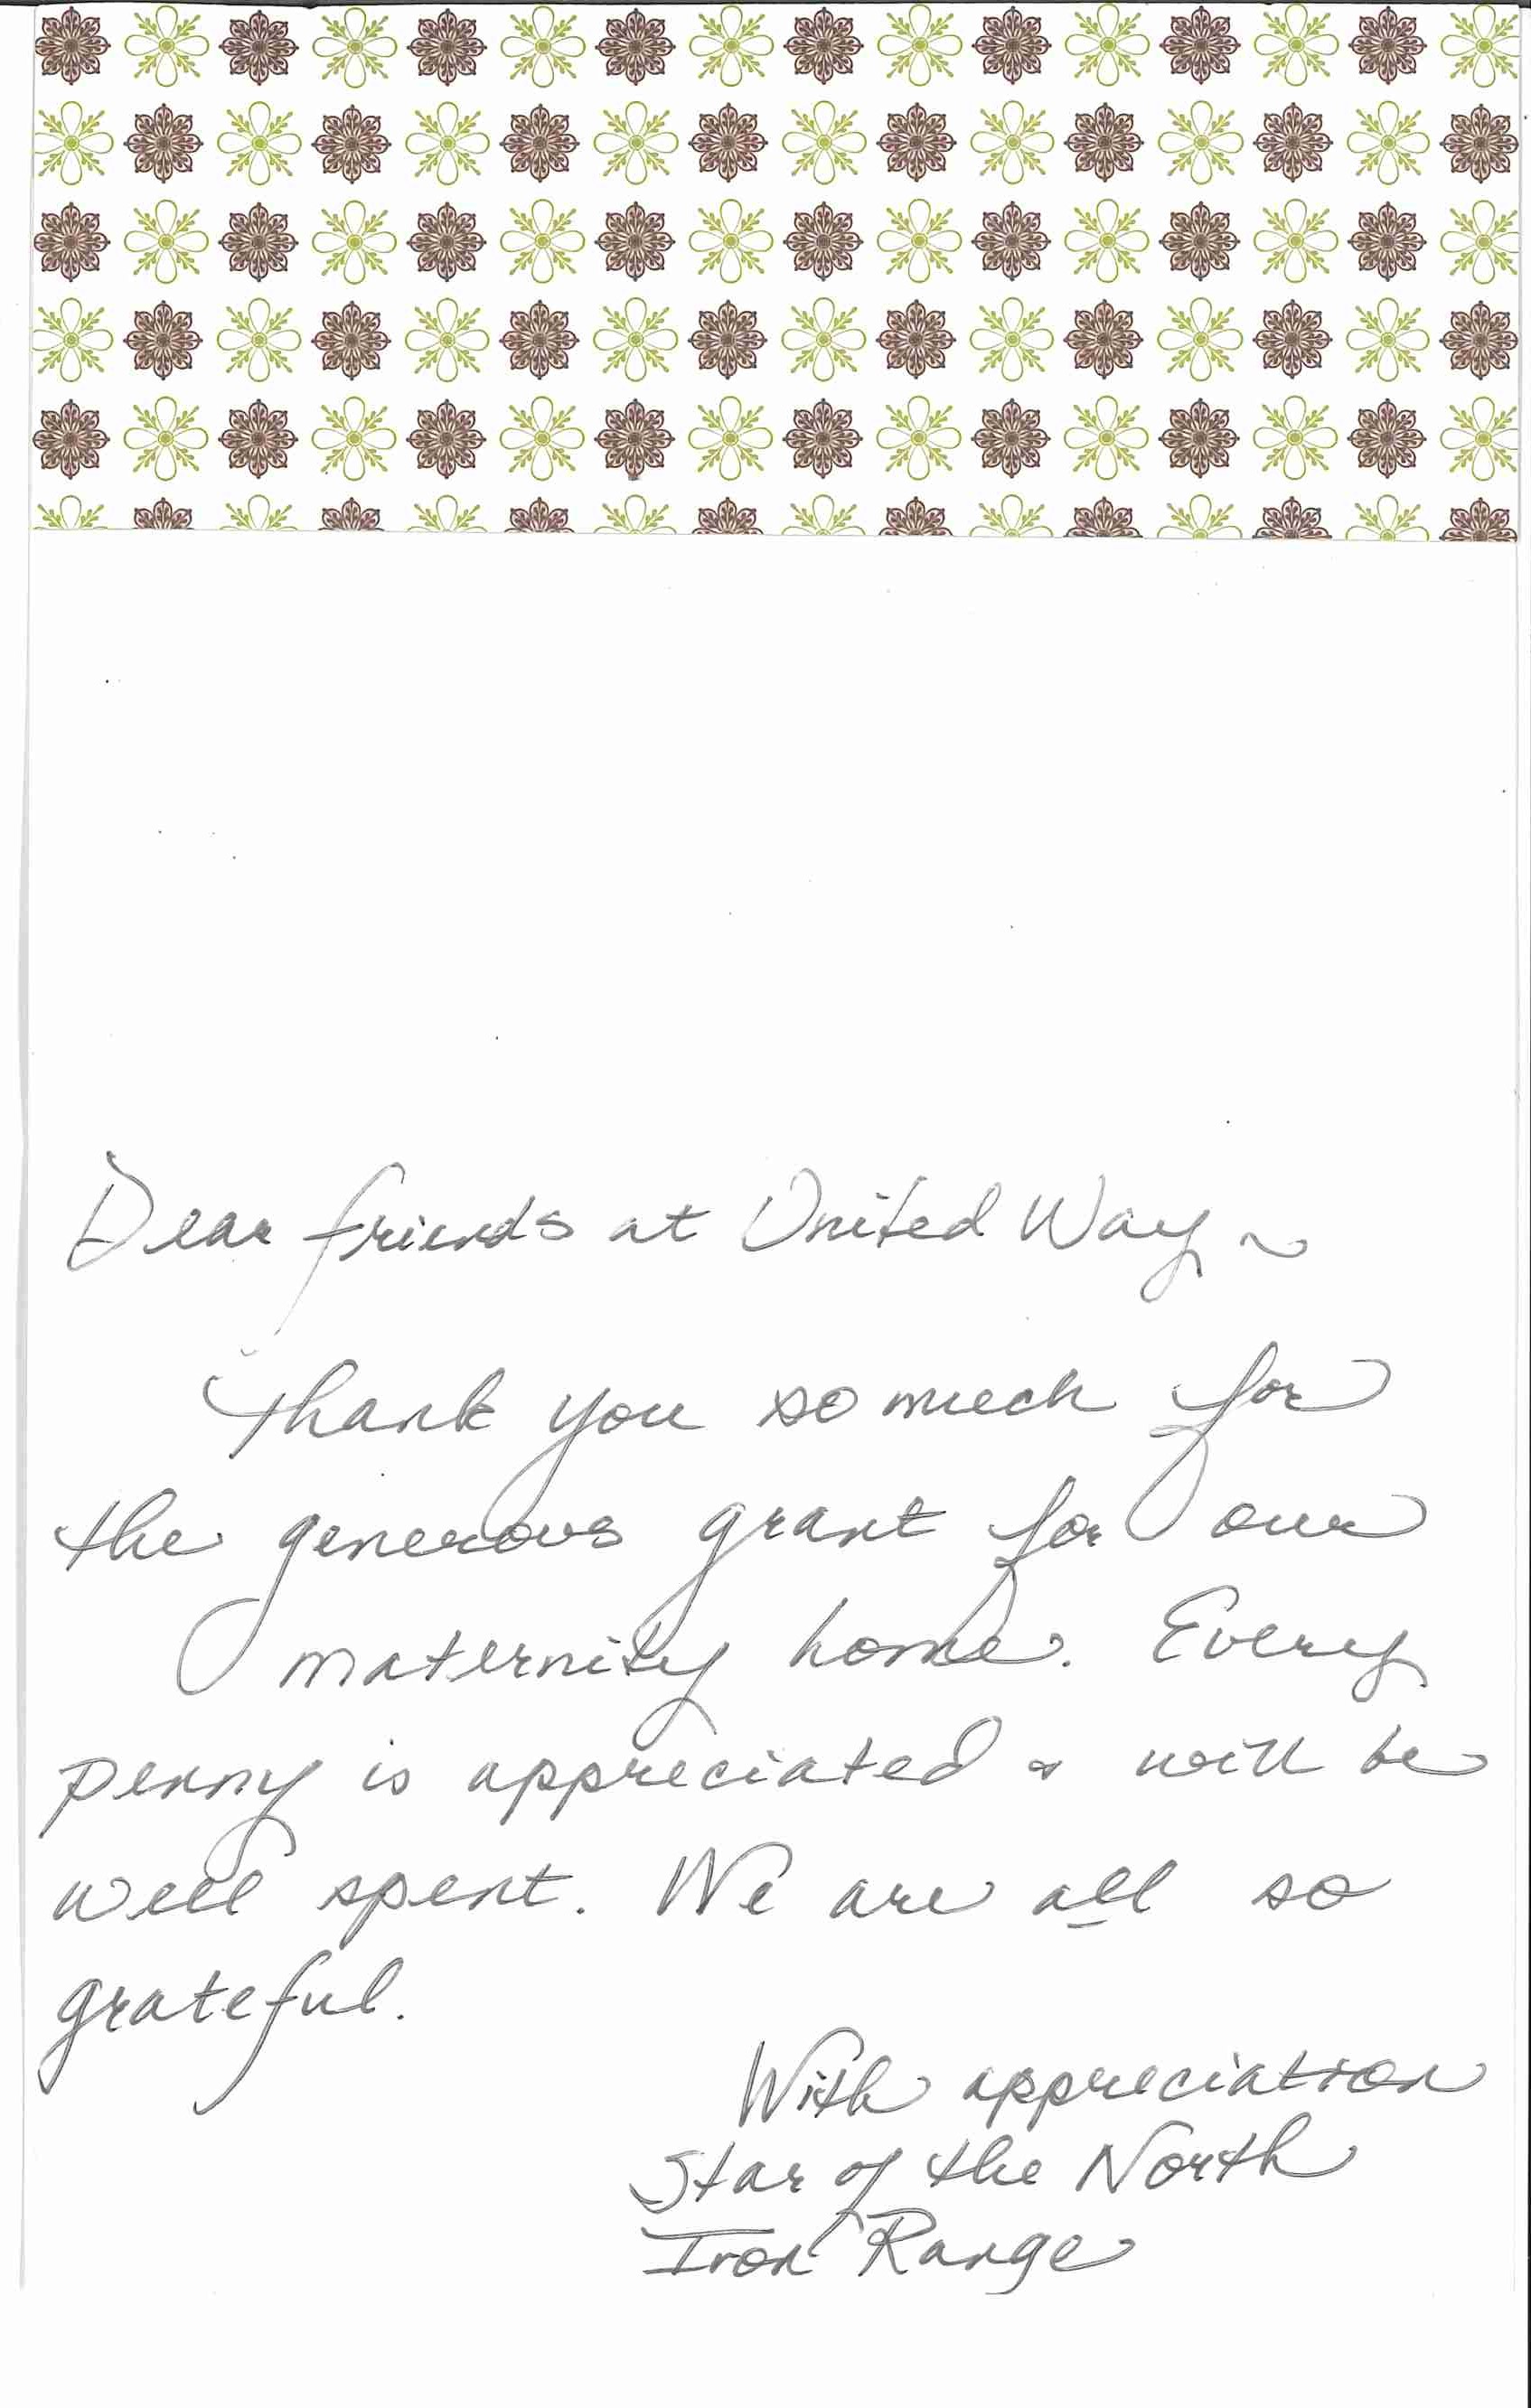 Dear friends at United Way ~
Thank you so much for
the generous grant for our
maternity home. Every
penny is appreciated & will be
well spent. We are all so
grateful.
With appreciation
Star of the North
Iron Range